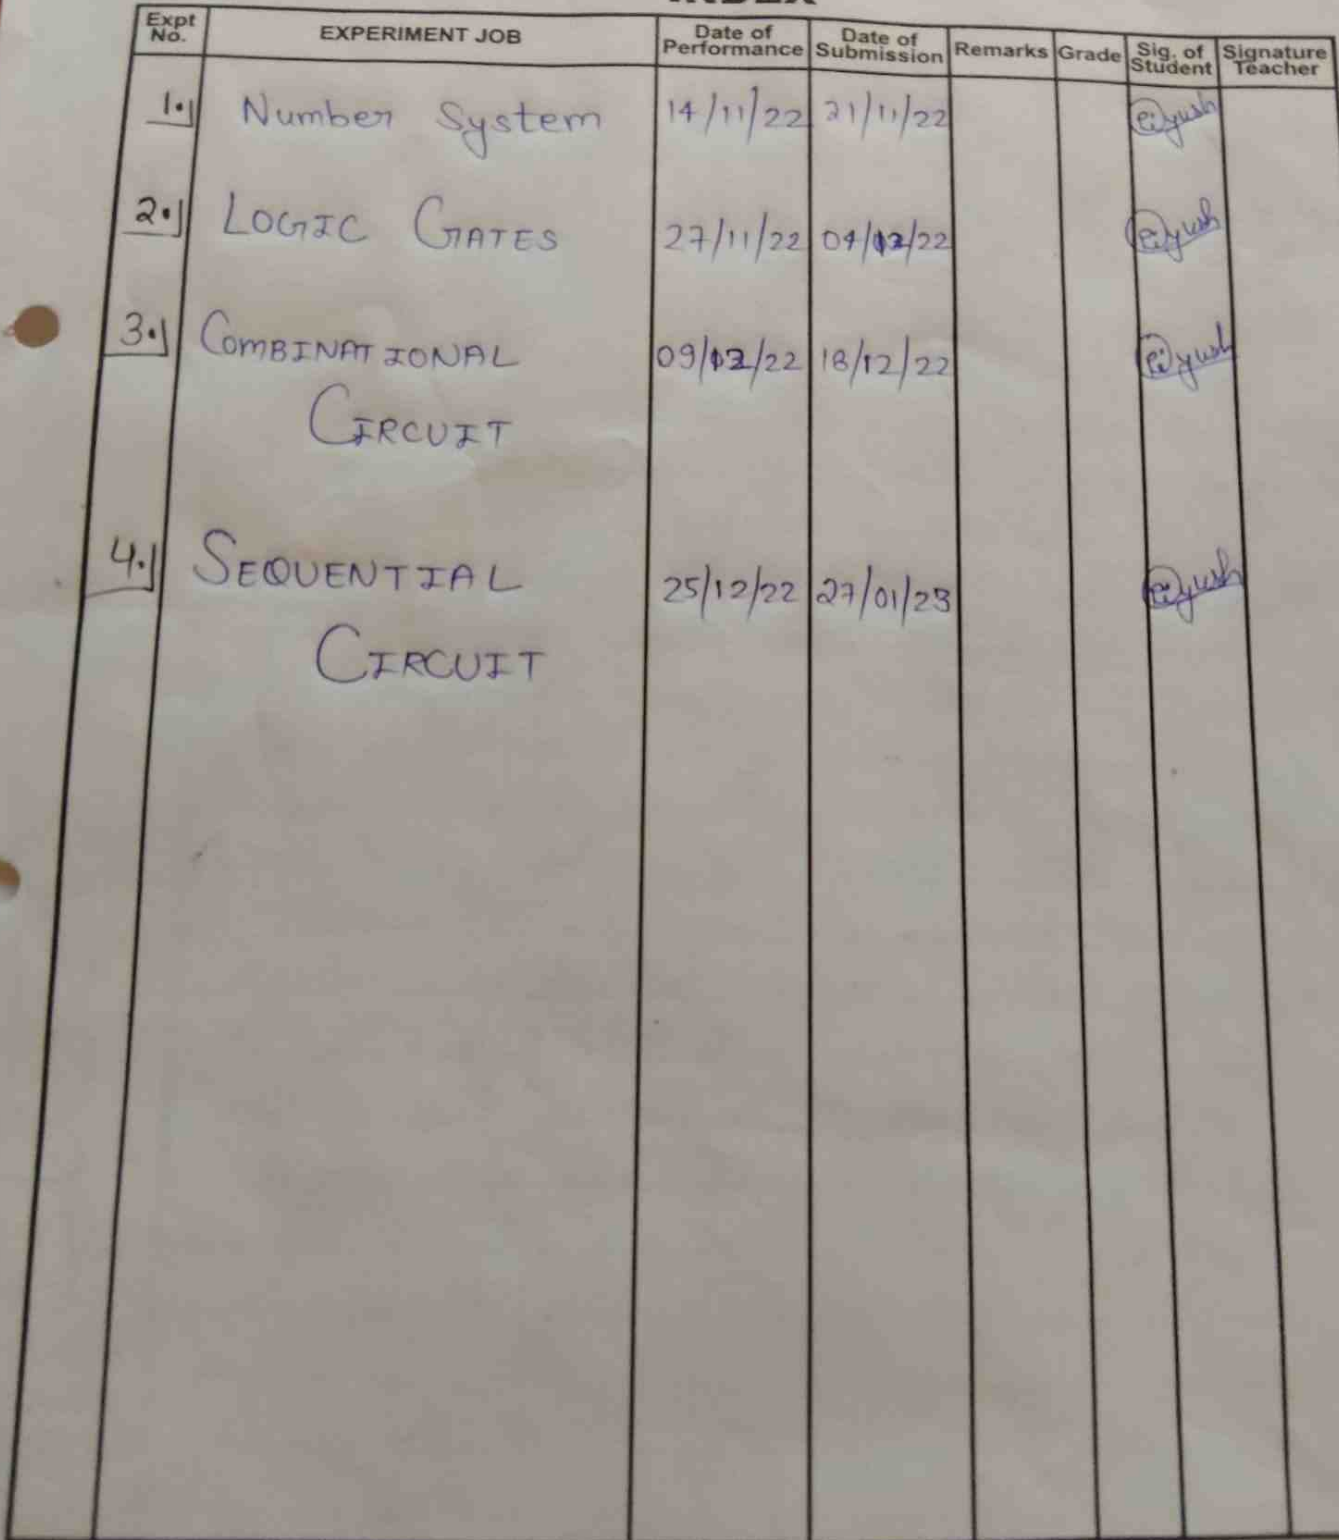 INDEX
Expt No. EXPERIMENT JOB Date of Performance Date of Submission Remarks Grade Sig. of Student Signature Teacher
1. Number System 14/11/22 21/11/22
2. LOGIC GATES 27/11/22 04/12/22
3. COMBINATIONAL 09/12/22 18/12/22
CIRCUIT
4. SEQUENTIAL 25/12/22 27/01/23
CIRCUIT